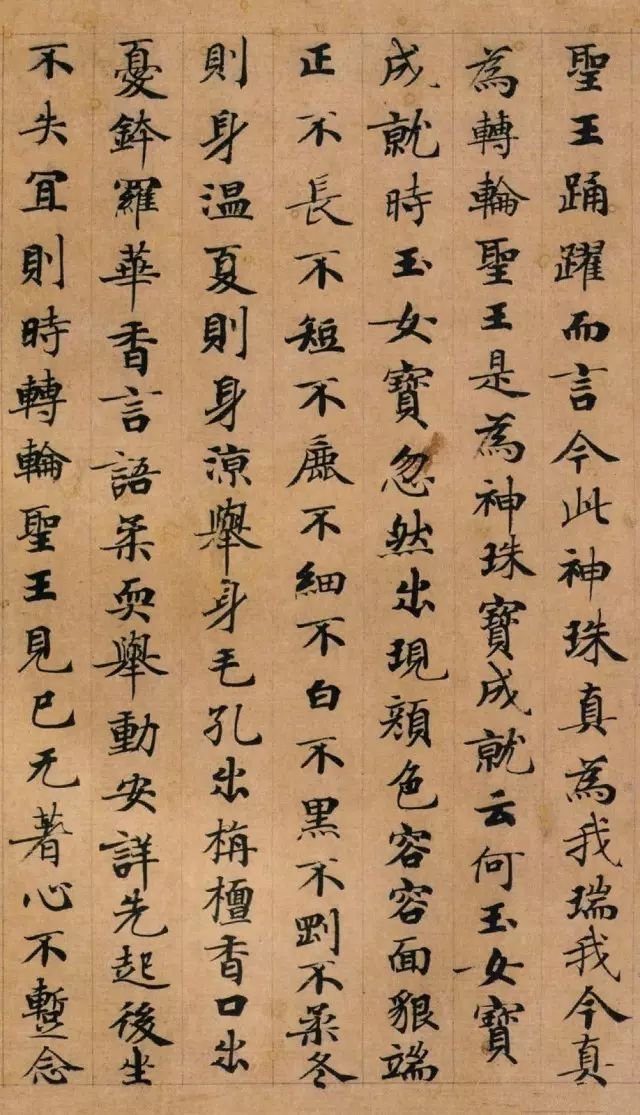 聖王踊躍而言今此神珠真為我瑞我今真
為轉輪聖王是為神珠寶成就云何玉女寶
成就時玉女寶忽然出現顏色容容面貇端
正不長不短不麁不細不白不黑不剛不柔冬
則身温夏則身涼舉身毛孔出栴檀香口出
憂鉢羅華香言語柔耎舉動安詳先起後坐
不失冝則時轉輪聖王見已无著心不蹔念